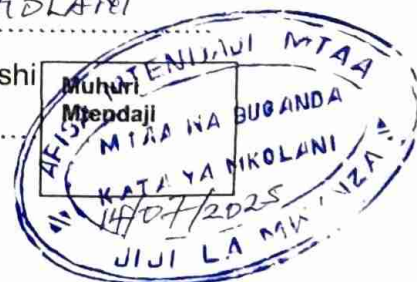 shi
Muhuri
Mtendaji
AFISA MTENDAJI MTAA
MTAA WA BUGANDA
KATA YA MKOLANI
14/07/2025
JIJI LA MWANZA